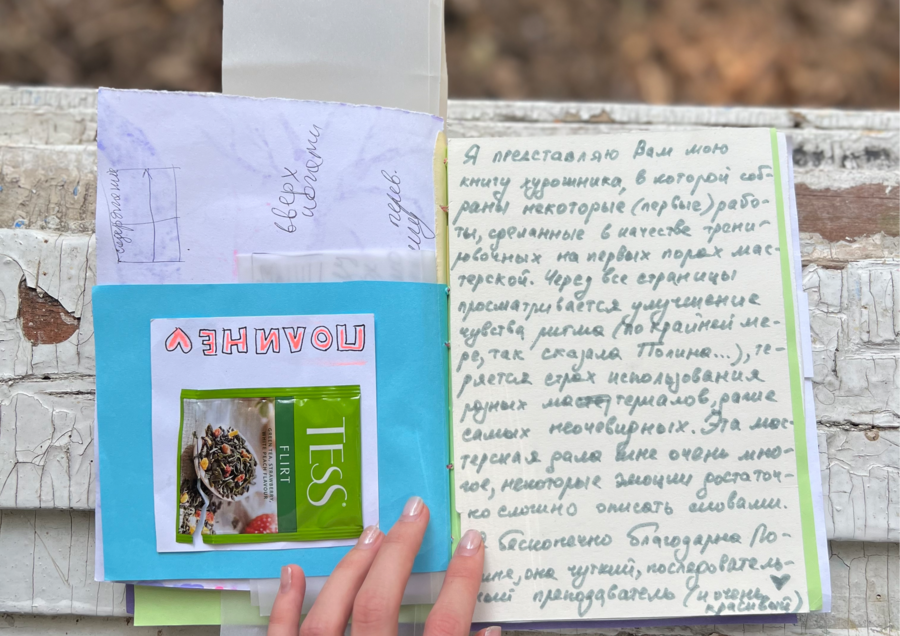 вверх
ногами
перев.
ПОЛИНЕ
TESS
FLIRT
GREEN TEA, STRAWBERRY
WHITE PEACH FLAVOUR
Я представляю Вам мою
книгу художника, в которой соб-
раны некоторые (первые) рабо-
ты, сделанные в качестве трени-
ровочных на первых порах мас-
терской. Через все страницы
просматривается улучшение
чувства ритма (по крайней ме-
ре, так сказала Полина...), те-
ряется страх использования
разных материалов, даже
самых неочевидных. Эта мас-
терская дала мне очень мно-
гое, некоторые эмоции достаточ-
но сложно описать словами.
бесконечно благодарна По-
лине, она чуткий, последователь-
ный преподаватель (и очень
красивый)